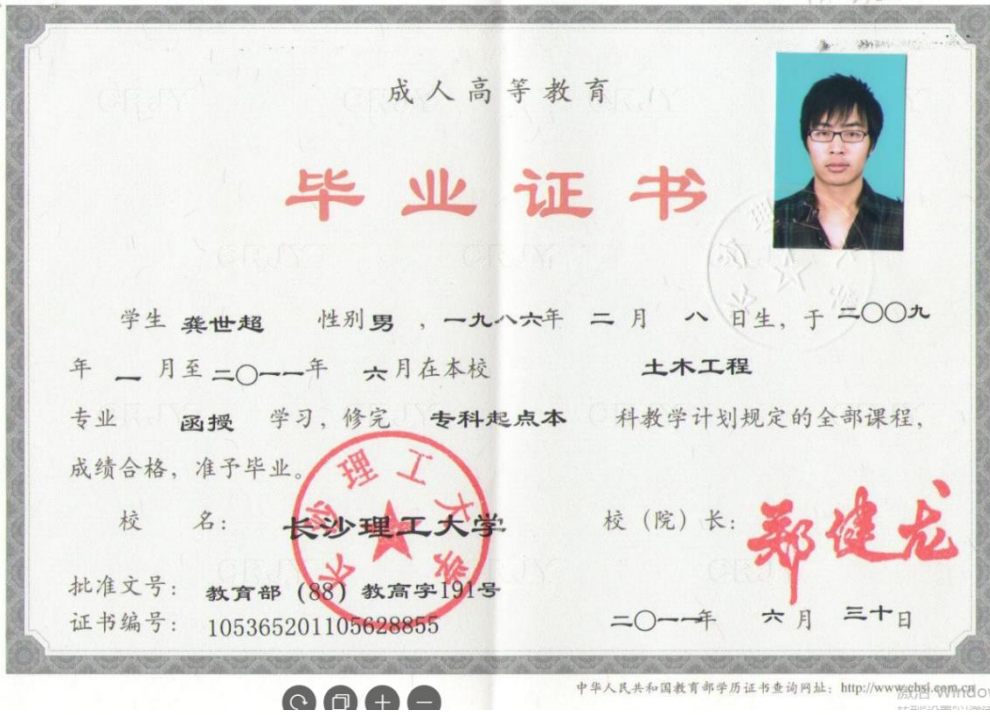 成人高等教育
毕业证书
学生 龚世超 性别 男 ，一九八六年 二 月 八 日生，于 二〇〇九
年 一 月至 二〇一一年 六 月在本校 土木工程
专业 函授 学习，修完 专科起点本 科教学计划规定的全部课程，
成绩合格，准予毕业。
校 名： 长沙理工大学 校（院）长： 郑健龙
长沙理工大学
批准文号： 教育部（88）教高字191号
证书编号： 105365201105628855 二〇一一年 六 月 三十日
中华人民共和国教育部学历证书查询网址： http://www.chsi.com.cn
激活 Window